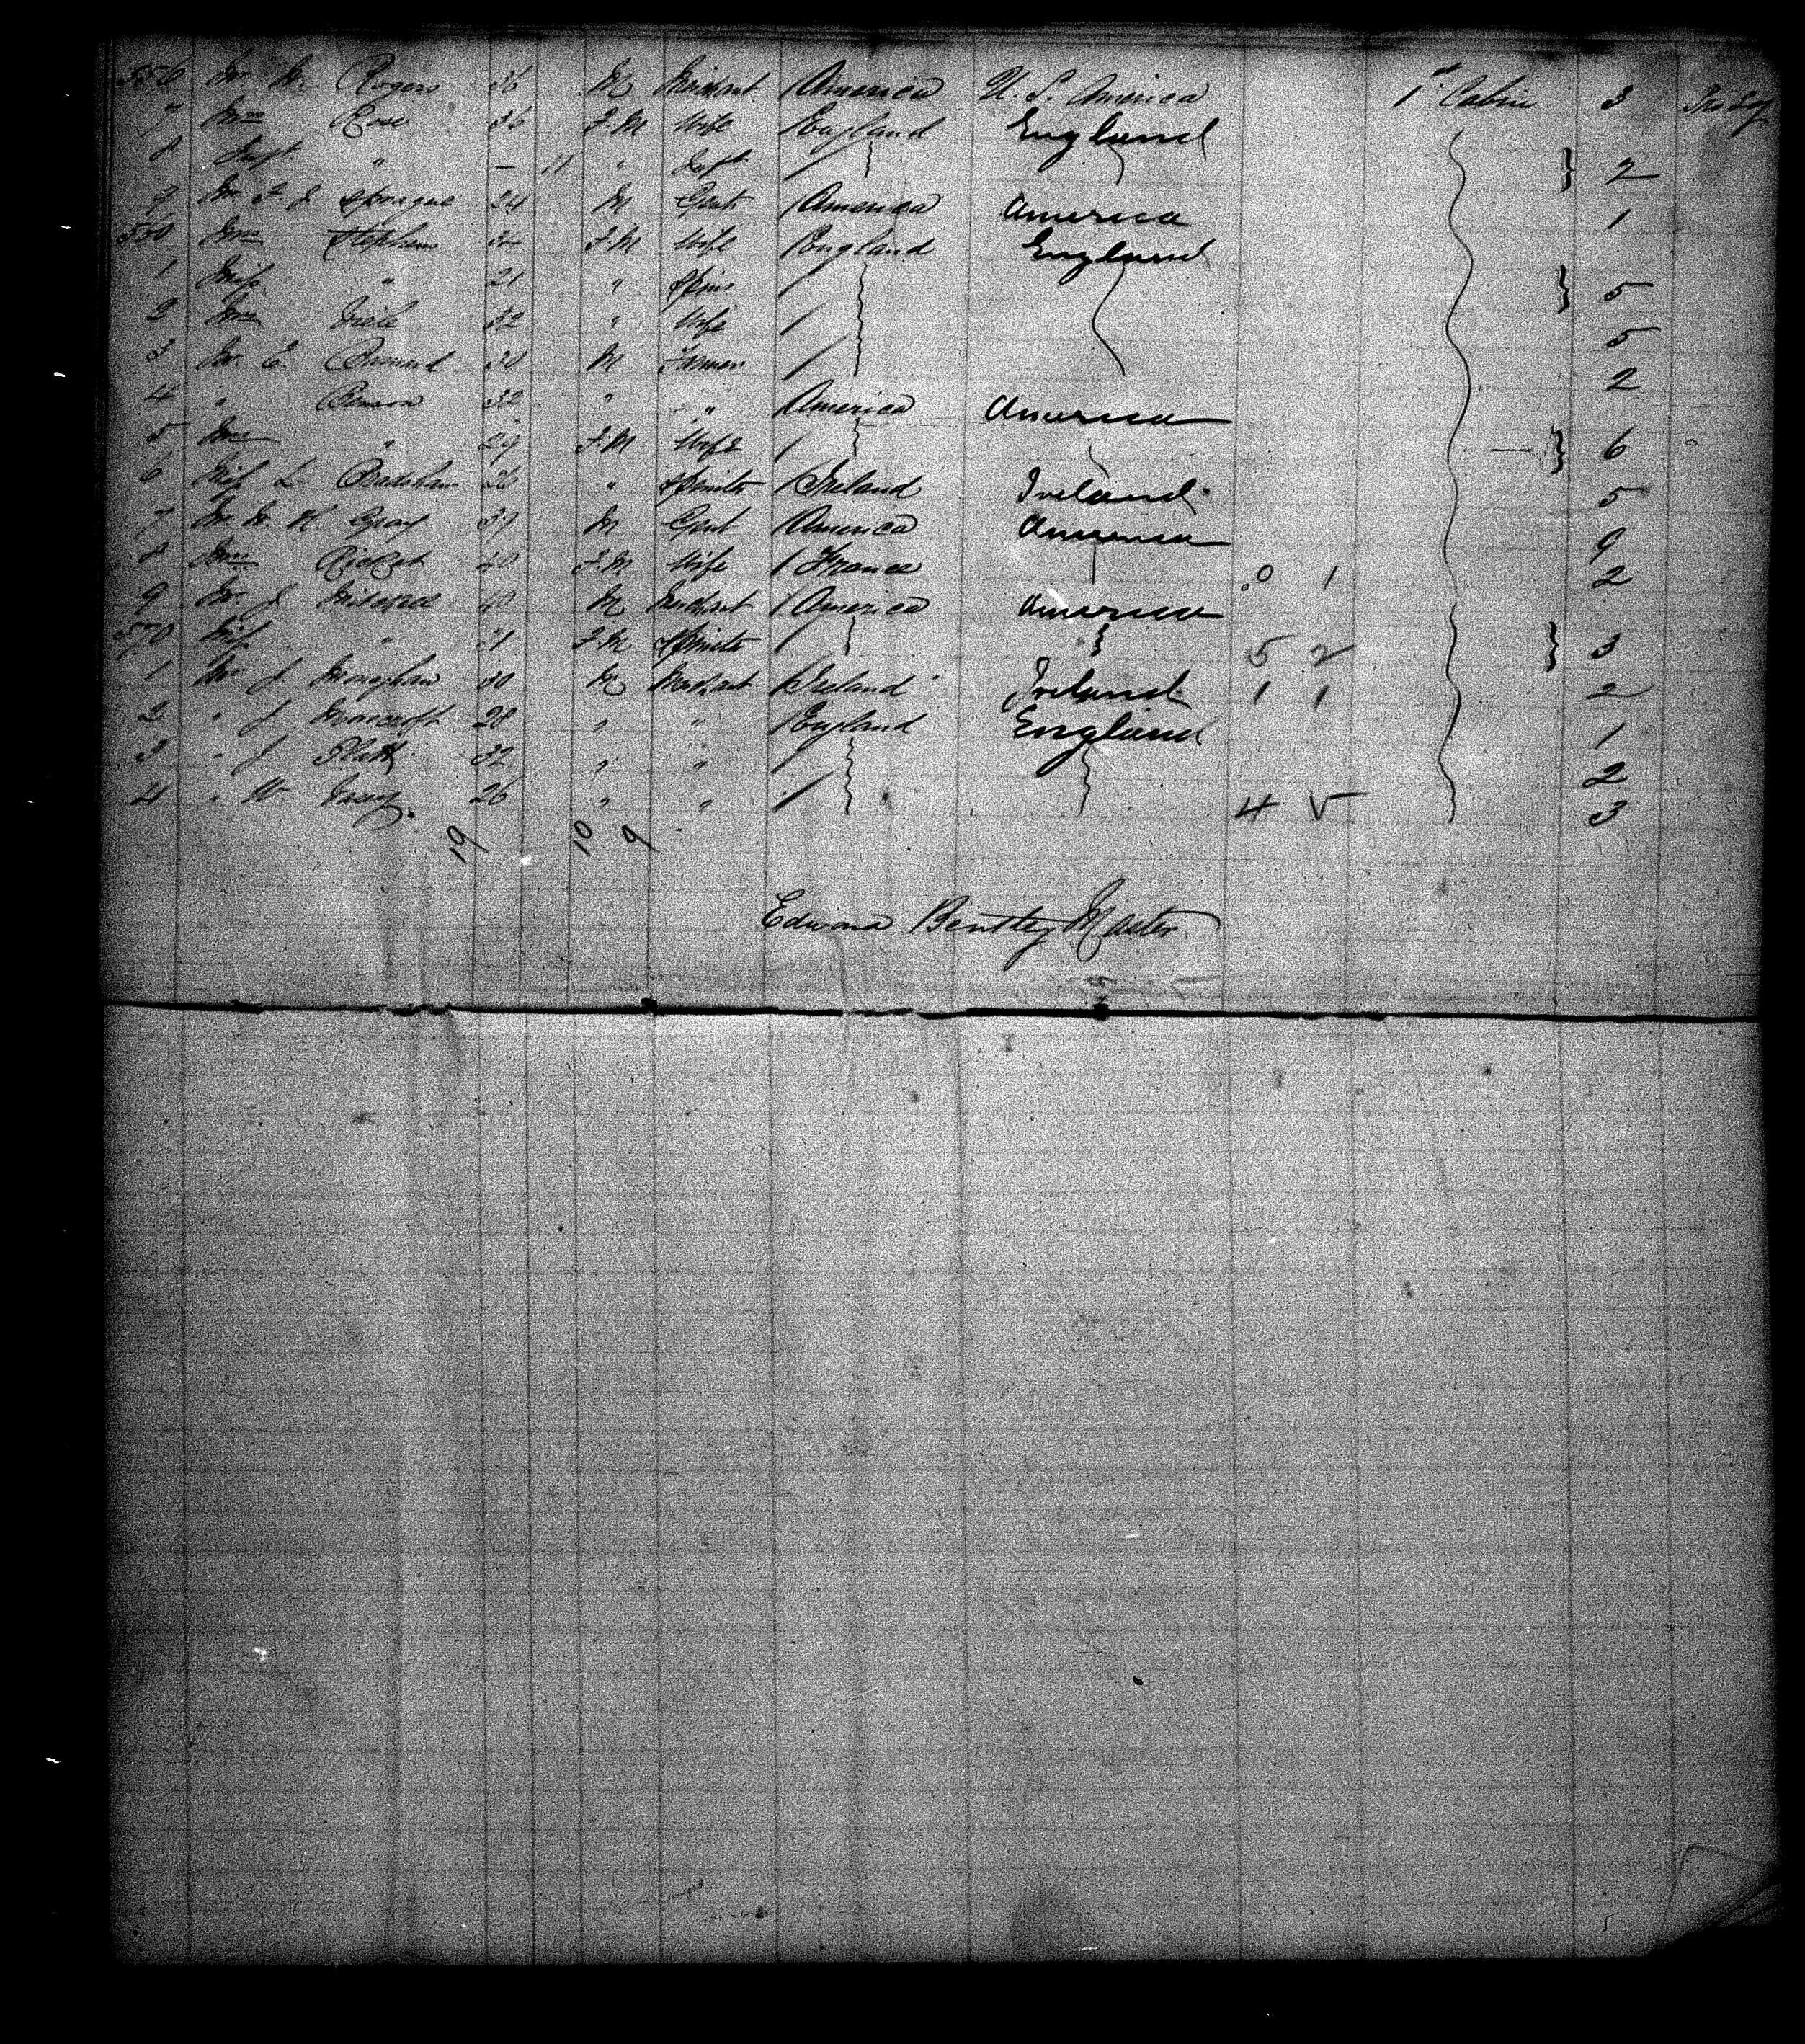 556 Mr. W. Rogers 36 M Merchant America U. S. America 1st Cabin 3
7 Mrs Rose 36 F.M Wife England England
8 Inft " - 11 " Inft / 2
9 Mr. F J Sprague 24 M Gent America America 1
Mrs Stephens F.M Wife England England
1 Miss " 21 " Spins / 5
2 Mrs 32 " Wife / 5
3 Mr. E. Barnard 30 M Farmer / 2
4 " Benson 32 " " America America
5 Mrs " 29 F.M Wife / 6
6 Miss L Bradshaw 26 " Spinster Ireland Ireland 5
7 Mr W. H Gray 39 M Gent America America 9
8 Mrs Ricket 40 F.M Wife France 0 1 2
9 Mr. J 40 M Merchant America America
570 Miss " 21 F.M Spinster / 5 2 3
1 Mr J Monaghan 30 M Merchant Ireland Ireland 1 1 2
2 " J 28 " " England England 1
3 " J Platt 32 " " / 2
4 " W. 26 " " / 4 5 3
19 10 9
Edward Bentley Master